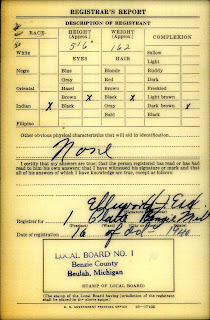 REGISTRAR'S REPORT
DESCRIPTION OF REGISTRANT
RACE HEIGHT (Approx.) WEIGHT (Approx.) COMPLEXION
5'6" 162
White Sallow
EYES HAIR Light
Negro Blue Blonde Ruddy
Gray Red Dark
Oriental Hazel Brown Freckled
Brown X Black X Light brown
Indian X Black Gray Dark brown X
Bald Black
Filipino
Other obvious physical characteristics that will aid in identification
None
I certify that my answers are true; that the person registered has read or has had read to him his own answers; that I have witnessed his signature or mark and that all of his answers of which I have knowledge are true, except as follows:
Ellsworth
Registrar for 1 Platte Benzie Mich
Date of registration 16 of Oct - 1940
LOCAL BOARD NO. 1
Benzie County
Beulah, Michigan
STAMP OF LOCAL BOARD
(The stamp of the Local Board having jurisdiction of the registrant shall be placed in the above space.)
U. S. GOVERNMENT PRINTING OFFICE